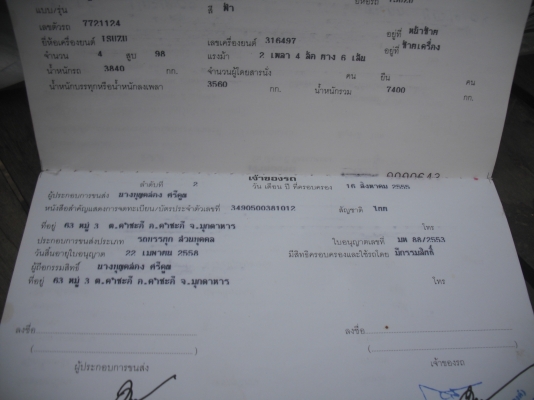 แบบ/รุ่น สี ฟ้า
เลขตัวรถ 7721124 อยู่ที่ หน้าซ้าย
ยี่ห้อเครื่องยนต์ เลขเครื่องยนต์ 316497 อยู่ที่ ซ้ายเครื่อง
จำนวน 4 สูบ 98 แรงม้า 2 เพลา 4 ล้อ ยาง 6 เส้น
น้ำหนักรถ 3840 กก. จำนวนผู้โดยสารนั่ง คน ยืน คน
น้ำหนักบรรทุกหรือน้ำหนักลงเพลา 3560 กก. น้ำหนักรวม 7400 กก.
เจ้าของรถ
ลำดับที่ 2 วัน เดือน ปี ที่ครอบครอง 16 สิงหาคม 2555
ผู้ประกอบการขนส่ง
หนังสือสำคัญแสดงการจดทะเบียน/บัตรประจำตัวเลขที่ 3490500381012 สัญชาติ ไทย
ที่อยู่ 63 หมู่ 3 ต.คำชะอี อ.คำชะอี จ.มุกดาหาร โทร
ประกอบการขนส่งประเภท รถบรรทุก ส่วนบุคคล ใบอนุญาตเลขที่ มห 88/2553
วันสิ้นอายุใบอนุญาต 22 เมษายน 2558 มีสิทธิครอบครองและใช้รถโดย มีกรรมสิทธิ์
ผู้ถือกรรมสิทธิ์
ที่อยู่ 63 หมู่ 3 ต.คำชะอี อ.คำชะอี จ.มุกดาหาร โทร.
ลงชื่อ ลงชื่อ
( ) ( )
ผู้ประกอบการขนส่ง เจ้าของรถ